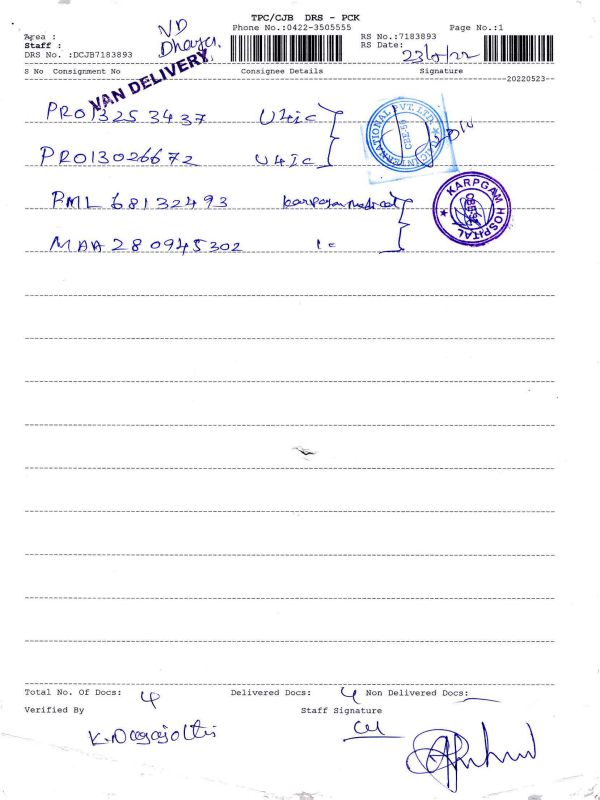 TPC/CJB DRS - PCK
Phone No.:0422-3505555 Page No.:1
Area : VD
Staff :
DRS No. :DCJB7183893
RS No.:7183893
RS Date: 23/5/22
VAN DELIVERY
S No Consignment No Consignee Details Signature
20220523
PRO13253437 U4ic
PRO13026672 U4IC
PML 68132493 karpagam medical
MAA 280945302
KARPGAM HOSPITAL
Total No. Of Docs: 4 Delivered Docs: 4 Non Delivered Docs:
Verified By Staff Signature